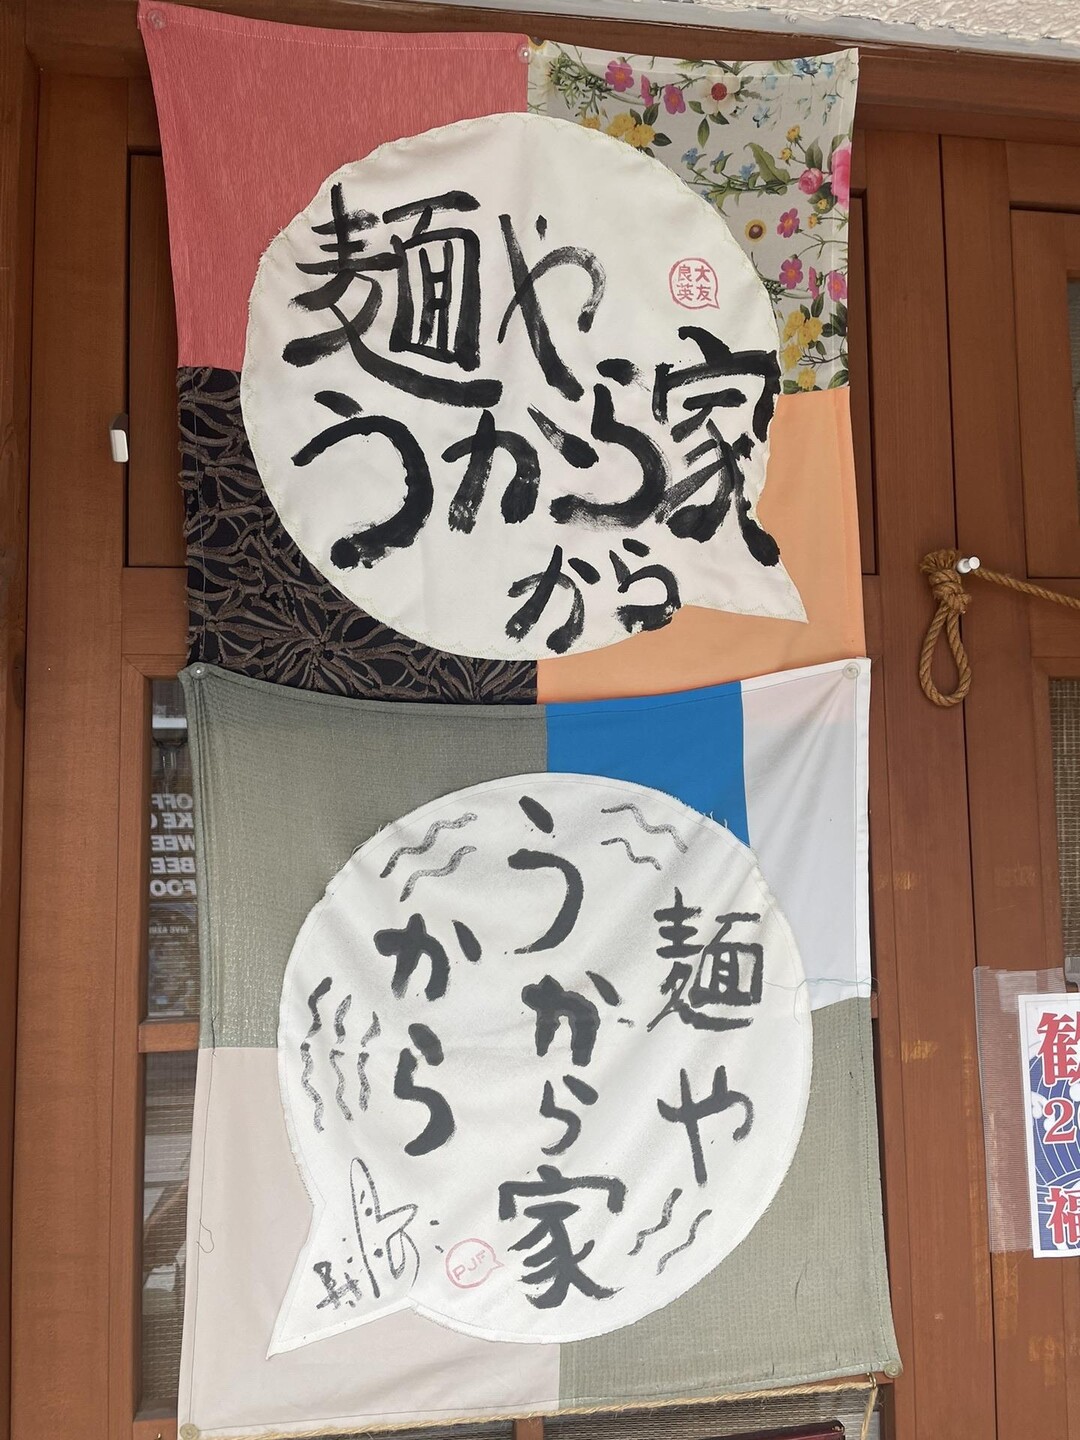 麺や
うから家
から
大友
良英
麺や
うから家
から
PJF
OFF
KE
WEE
BEE
FOO
歓
2
福